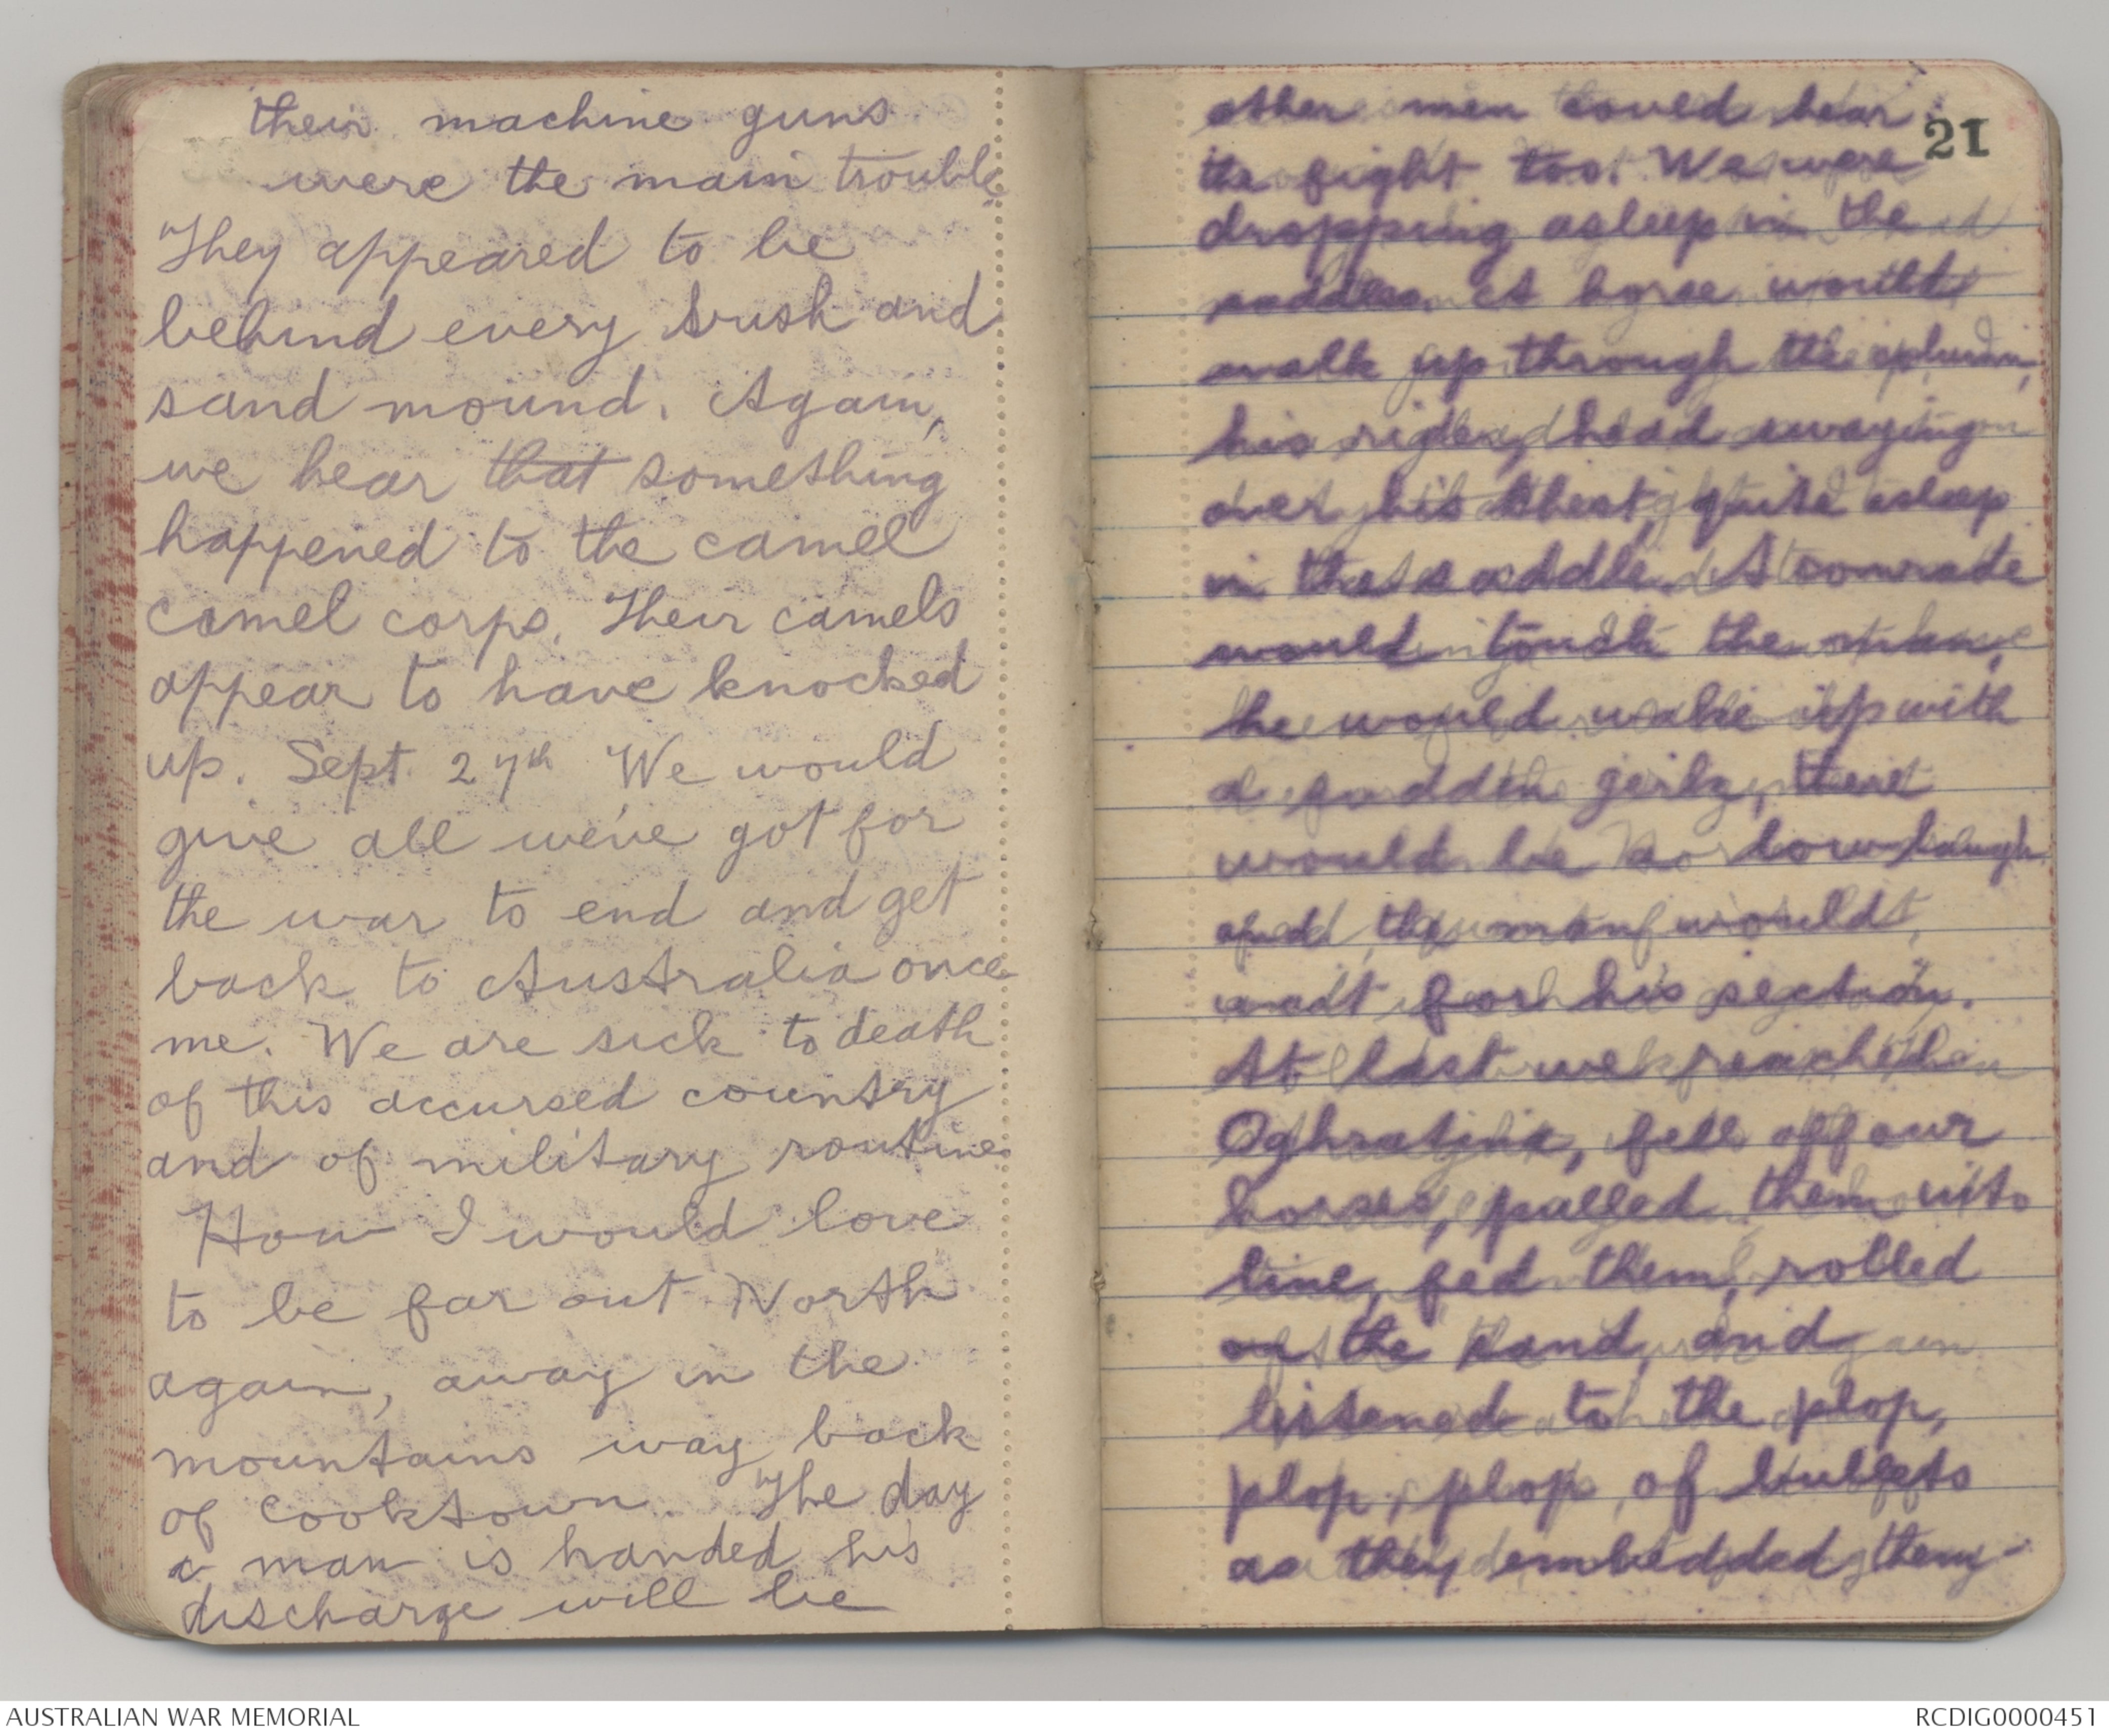 their machine guns
were the main trouble.
They appeared to be
behind every bush and
sand mound. Again,
we hear that something
happened to the camel
camel corps. Their camels
appear to have knocked
up. Sept. 27th We would
give all we've got for
the war to end and get
back to Australia once
me. We are sick to death
of this accursed country
and of military routine.
How I would love
to be far out North
again, away in the
mountains way back
of Cooktown. The day
a man is handed his
discharge will be
21
other men could hear
the fight too. We were
dropping asleep in the
saddles. A horse would
walk up through the column,
his rider, head swaying
over his chest, quite asleep
in the saddle. A comrade
would touch the man,
he would wake up with
a sudden jerk, there
would be a low laugh
and the man would
wait for his section.
At last we reached
Oghratina, fell off our
horses, pulled them into
line, fed them, rolled
on the sand, and
listened to the plop,
plop, plop, of bullets
as they embedded them-
AUSTRALIAN WAR MEMORIAL
RCDIG0000451